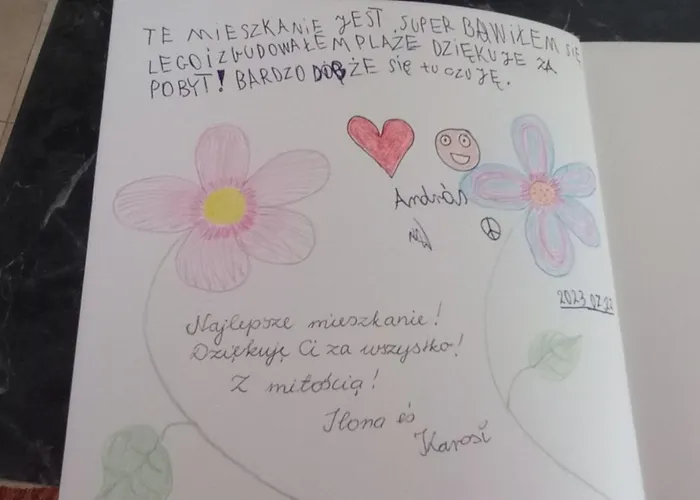 TE MIESZKANIE JEST SUPER BAWIŁEM SIĘ
LEGO I ZBUDOWAŁEM PLAŻE DZIĘKUJE ZA
POBYT! BARDZO DOBŻE SIĘ tU CZUJĘ.
András
2023.02.22
Najlepsze mieszkanie!
Dziękuję Ci za wszystko!
Z miłością!
Ilona és